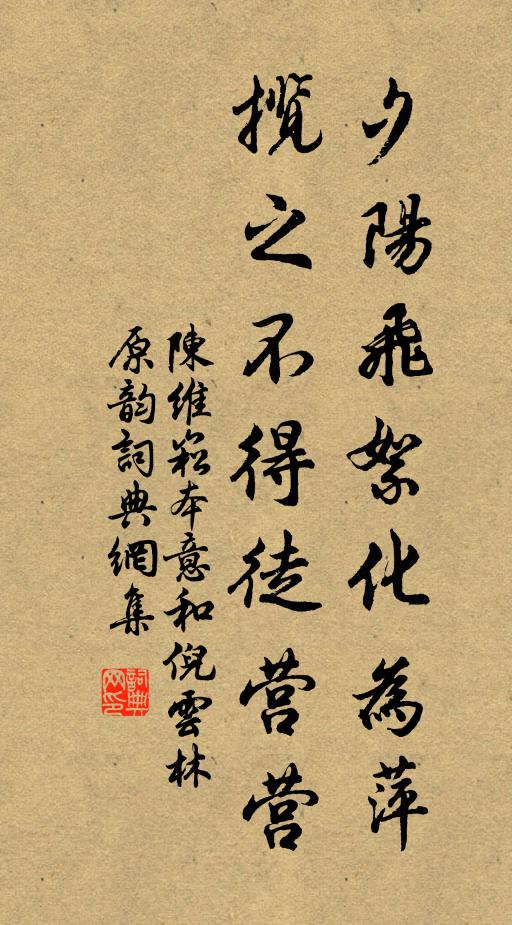 夕陽飛絮化為萍
攬之不得徒营营
陳維崧本意和倪雲林
原韵詞典網集
詞典网印